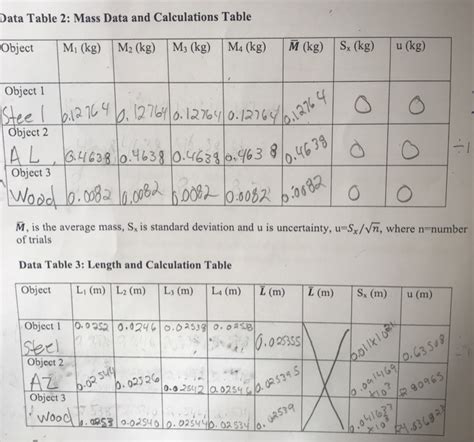 Data Table 2: Mass Data and Calculations Table
Object M₁ (kg) M₂ (kg) M₃ (kg) M₄ (kg) M̄ (kg) Sₓ (kg) u (kg)
Object 1
Steel 0.12764 0.12764 0.12764 0.12764 0.12764 0 0
Object 2
AL 0.4638 0.4638 0.4638 0.4638 0.4638 0 0
÷1
Object 3
Wood 0.0082 0.0082 0.0082 0.0082 0.0082 0 0
M̄, is the average mass, Sₓ is standard deviation and u is uncertainty, u=Sₓ/√n, where n=number
of trials
Data Table 3: Length and Calculation Table
Object L₁ (m) L₂ (m) L₃ (m) L₄ (m) L̄ (m) L̄ (m) Sₓ (m) u (m)
Object 1 0.0252 0.0246 0.02538
Steel 0.025355
Object 2
AL 0.02544 0.02526 0.02542 0.02546 0.025395
Object 3
Wood 0.0253 0.02540 0.02540 0.02534 0.02539